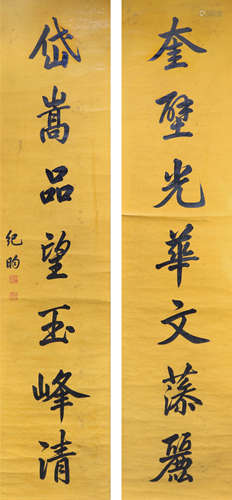 奎壁光華文藻麗
岱嵩品望玉峰清
紀昀